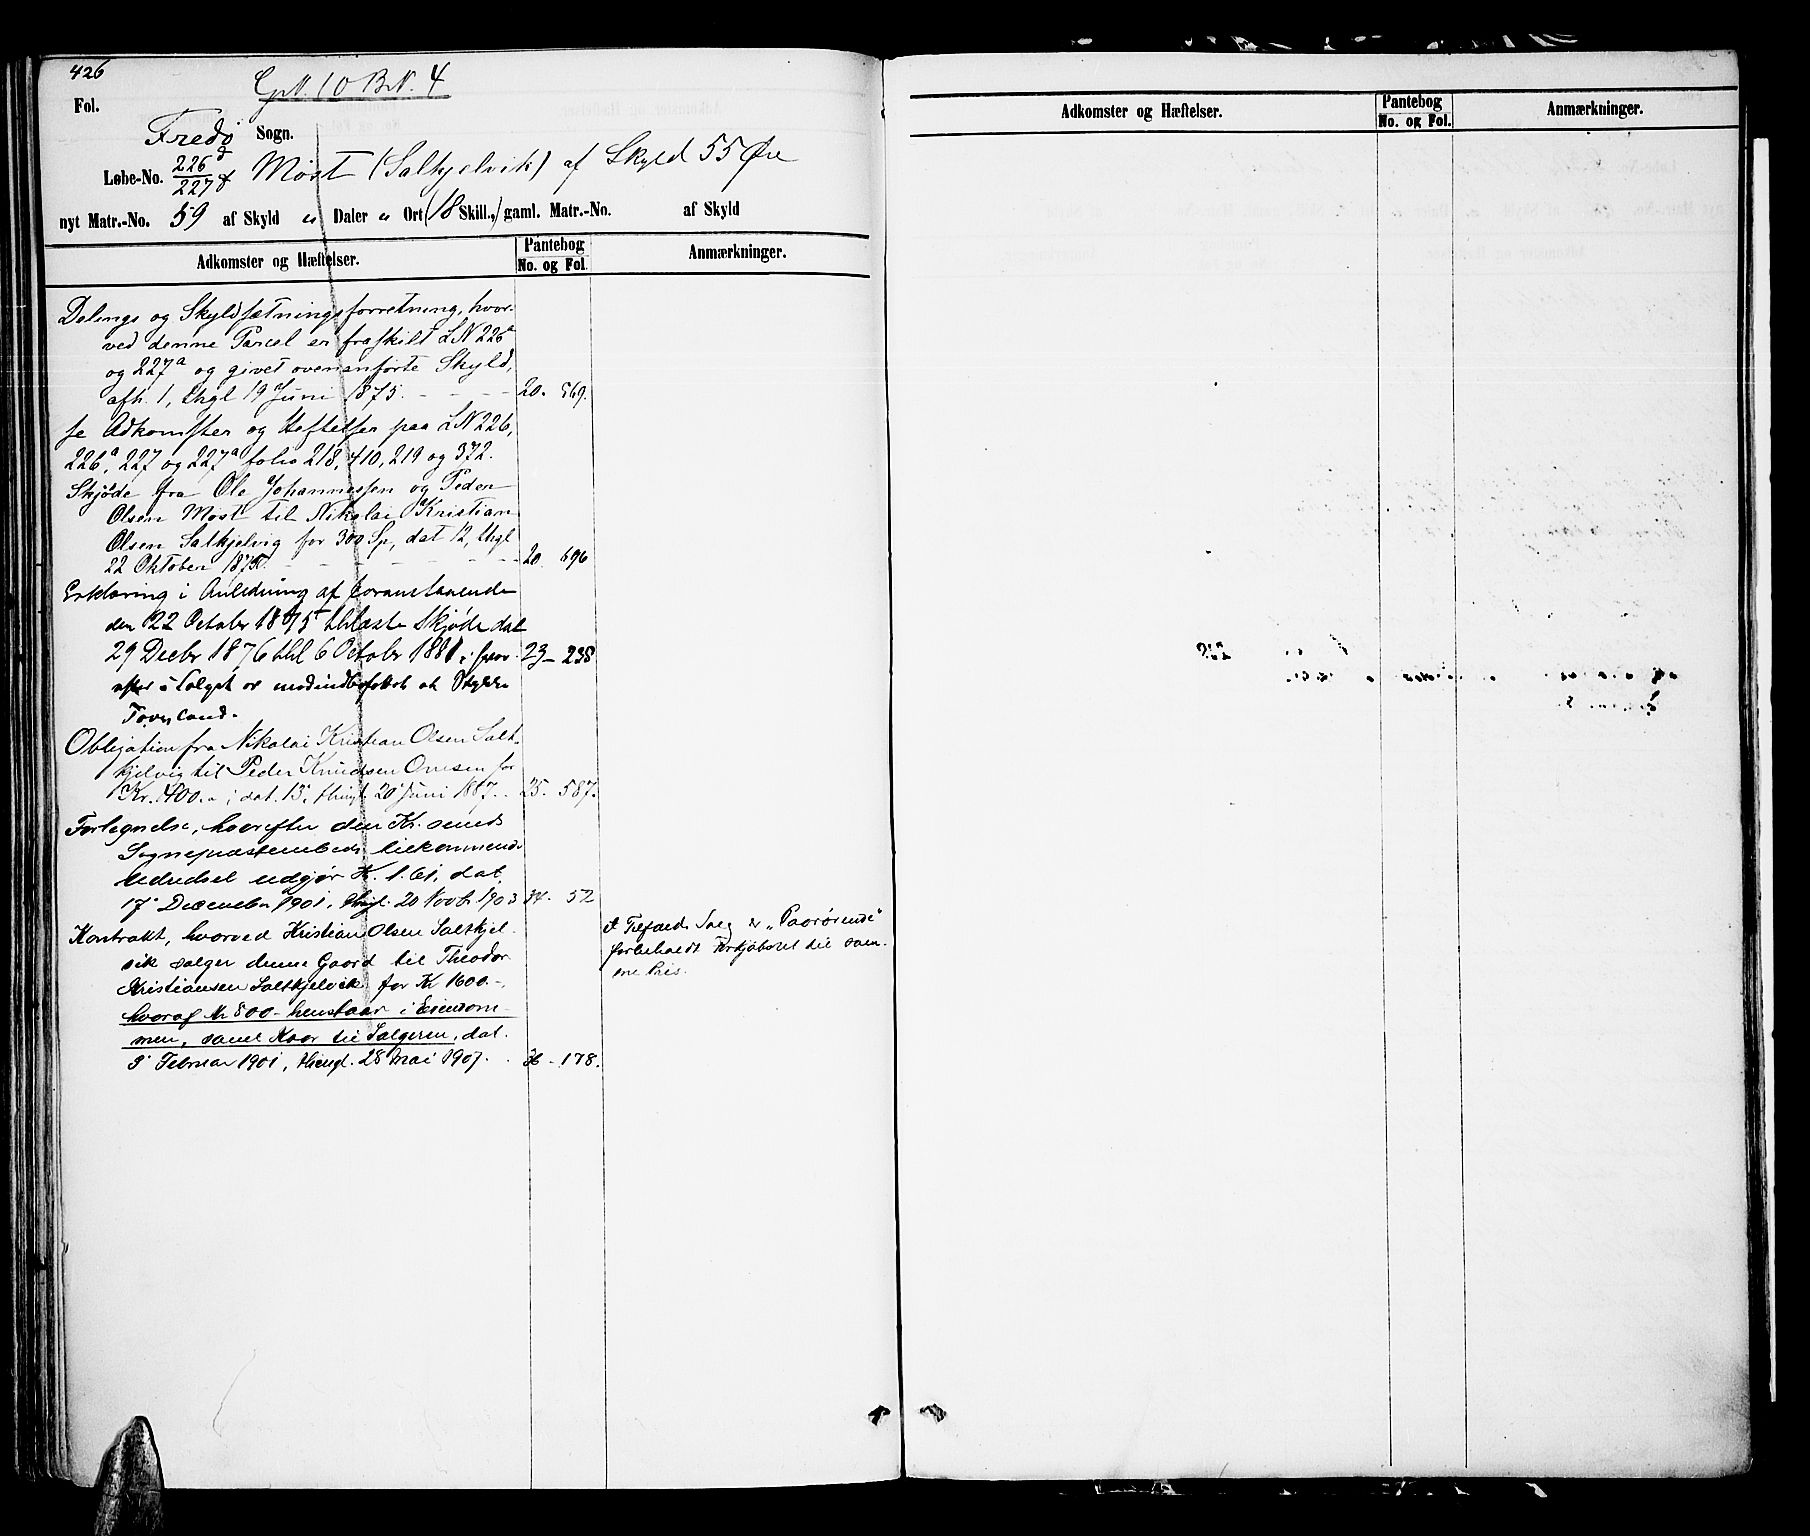 426
GN. 10 BN. 4
Fol.
Fredø Sogn.
Løbe-No. 226d/227d Møst (Salkjelvik) af Skyld 55 Øre
nyt Matr.-No. 59 af Skyld " Daler " Ort (18 Skill.,) gaml. Matr.-No. af Skyld
Adkomster og Hæftelser.
Pantebog
No. og Fol.
Anmærkninger.
Delings og Skyldsætningsforretning, hvor-
ved denne Parcel er fraskilt LN 226a
og 227a og givet ovenanførte Skyld,
afh. 1, thgl 19 Juni 1875. - - - - 20. 569.
se Adkomster og Heftelser paa LN 226,
226a, 227 og 227a folio 218, 410, 219 og 372.
Skjøde fra Ole Johannessen og Peder
Olsen Møst til Nikolai Kristian
Olsen Salkjelvig for 300 Sp, dat 12, thgl
22 Oktober 1875. - - - - - - 20. 696
Erklæring i Anledning af foranstaaende
den 22 October 1875 thlæste Skjøde dat
29 Decbr 1876 thl 6 October 1881, 23 - 238
efter i Salget er medindbefattet et Stykke
Obligation fra Nikolai Kristian Olsen Salt-
kjelvig til Peder Knudsen Onsøen for
Kr. 400.- ; dat. 13, thingl. 20 Juni 1887. - 25. 587.
hvorefter den Kr.sunds
Sognepræstembede tilkommende
udgjør K. 1.61, dat.
17 December 1901, thgl. 20 Novb. 1903 34. 52
Kontrakt, hvorved Kristian Olsen Saltkjel-
vik sælger denne Gaard til Theodor
Kristiansen Saltkjelvik for Kr 1600.-,
hvoraf Kr 800.- henstaar i Eiendom-
men, samt Kaar til Sælgeren, dat.
5 Februar 1901, thingl. 28 Mai 1907. - 36 - 178.
I Tilfælde Salg er „Paarørende"
forbeholdt Forkjøbsret til sam-
me Pris.
Adkomster og Hæftelser.
Pantebog
No. og Fol.
Anmærkninger.